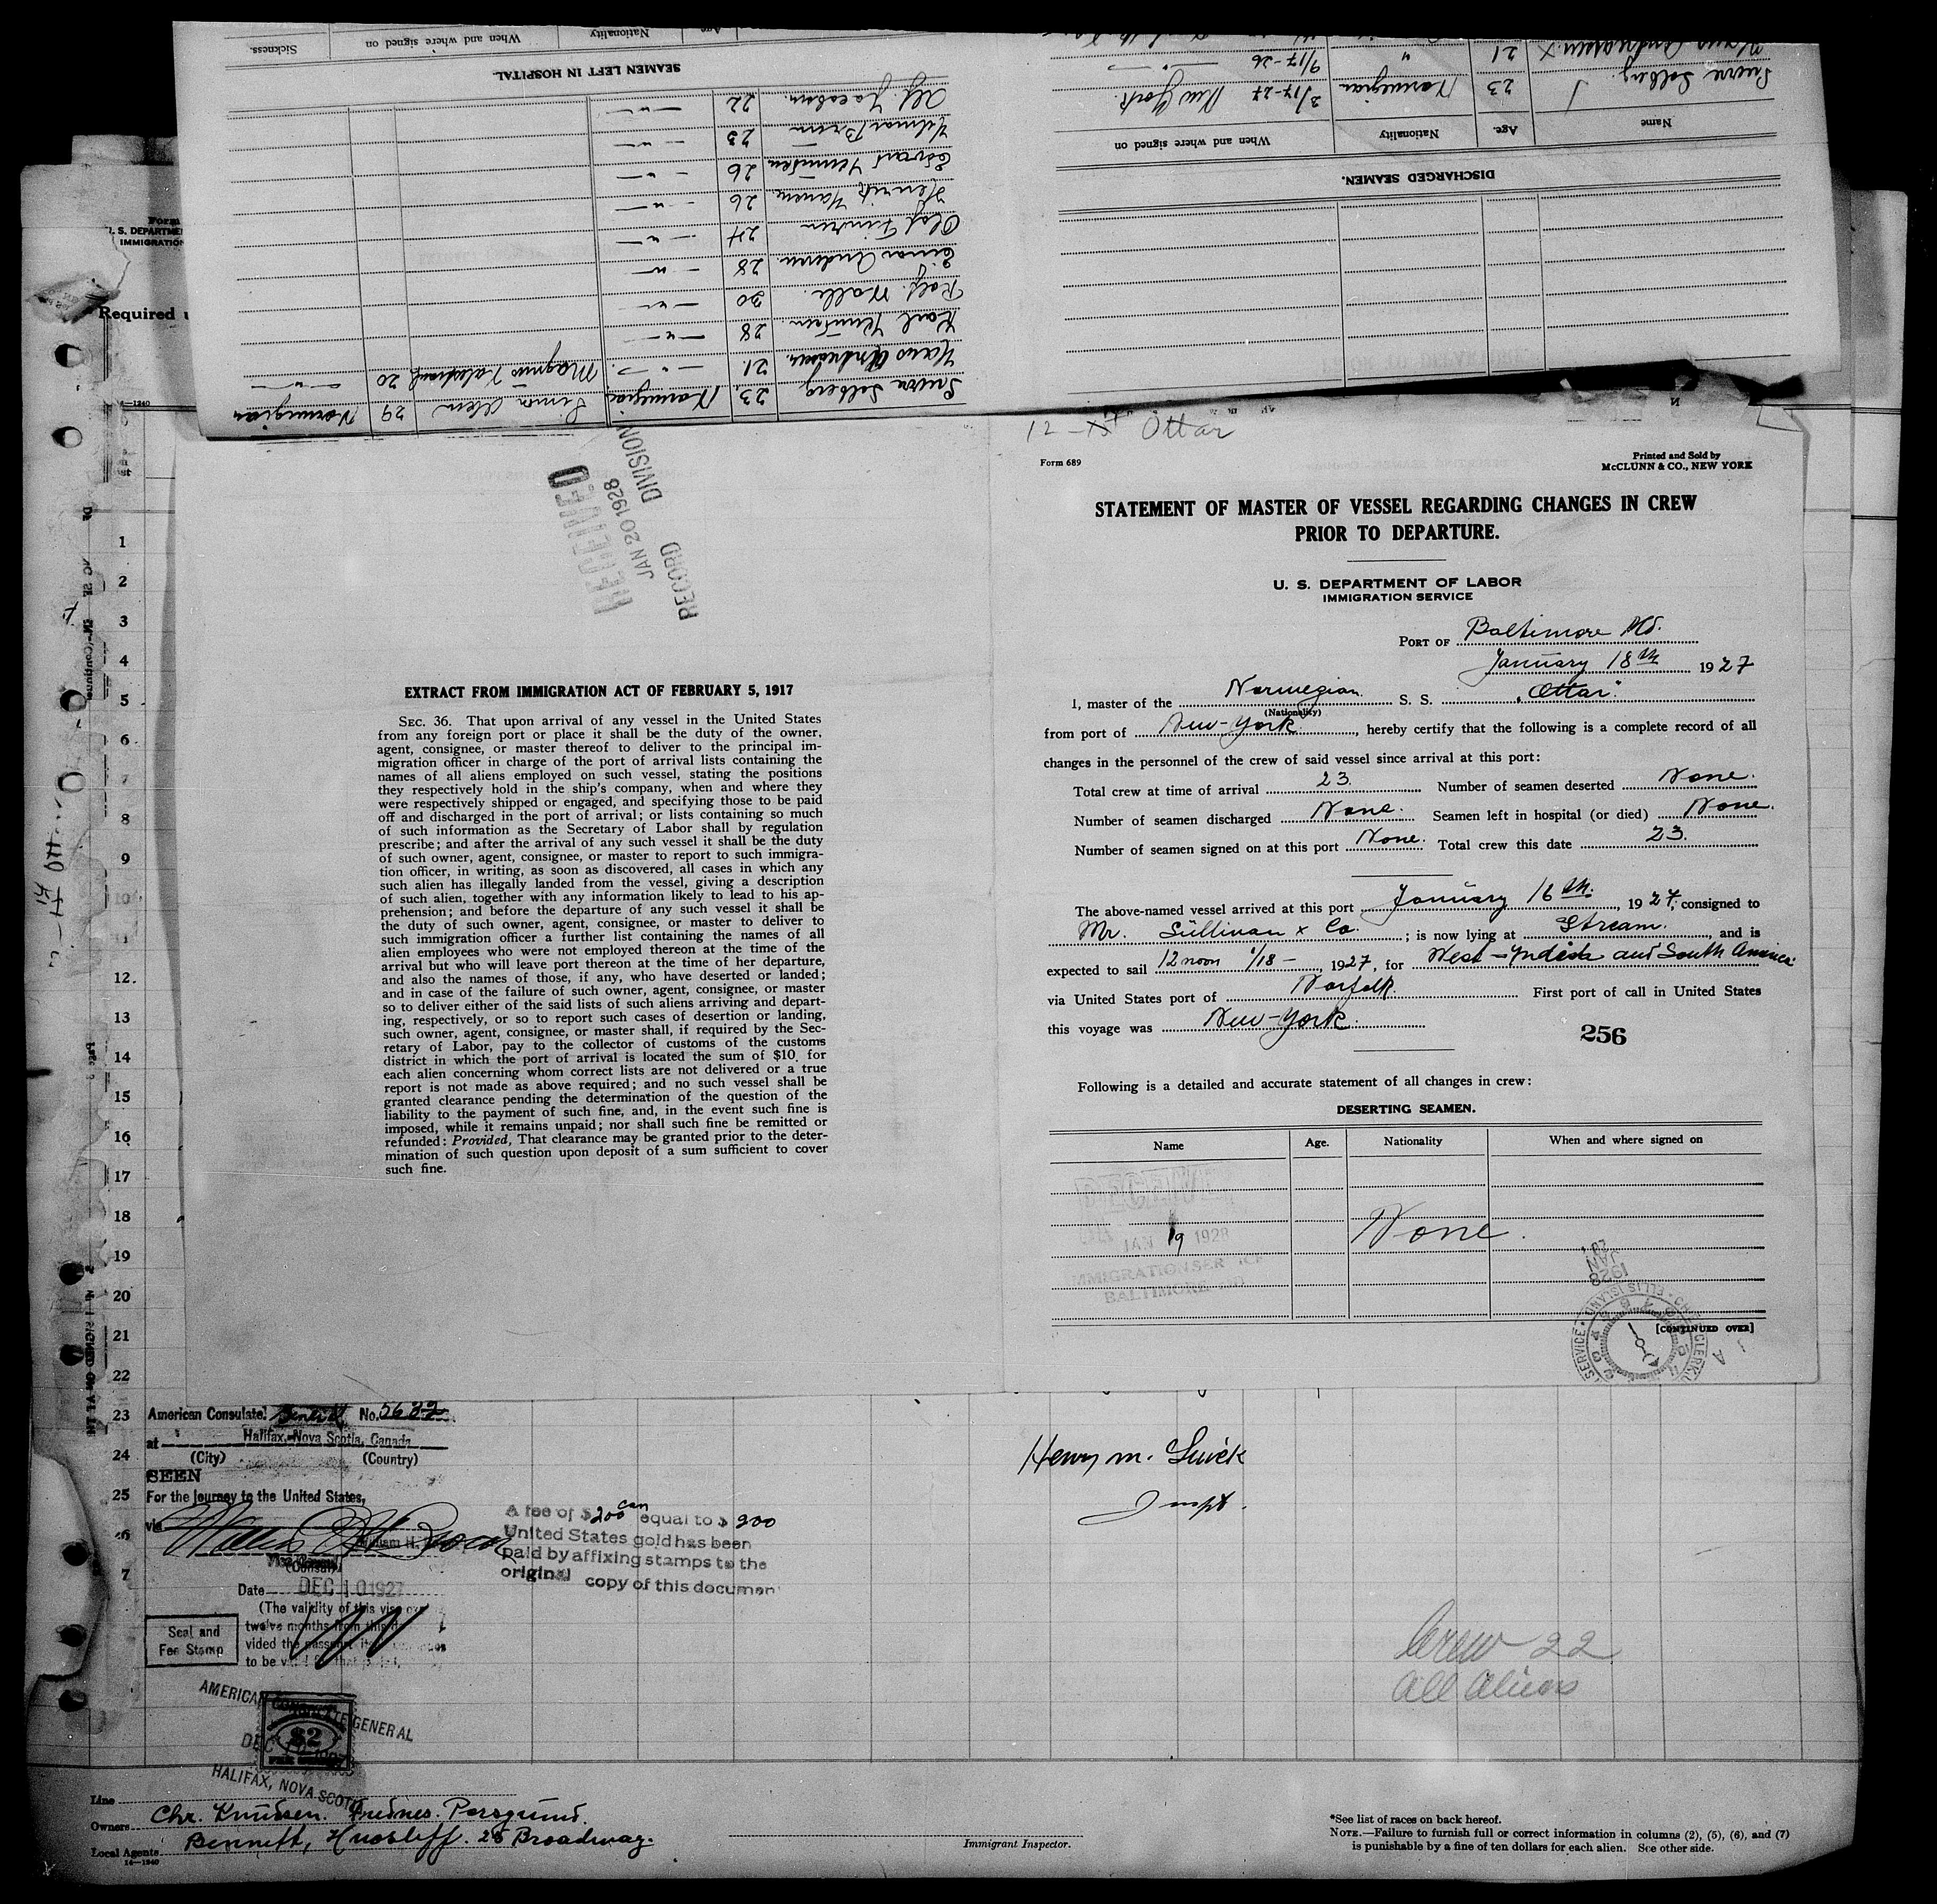 SEAMEN LEFT IN HOSPITAL.
Sickness.
When and where signed on
Nationality
Age
Alf. Jacobsen. 22 — " —
Hilmar Brenn 23 — " —
26 — " —
Henrik Hansen 26 — " —
Olaf 24 — " —
Einar Andersen 28 — " —
Rolf. Walle. 30 — " —
Karl Knutsen. 28 — " —
Hans Andreassen. 21 — " — Magnus 20 — " —
Sverre Solberg 23. Norwegian Simon Olsen 29 Norwegian
Hans Andreassen X 21 " 9/17-26 — " —
Sverre Solberg 23 Norwegian 2/17-27 New York.
Name
Age.
Nationality
When and where signed on
DISCHARGED SEAMEN.
Form
U. S. DEPARTME
IMMIGRATION
Required u
RECEIVED
JAN 20 1928
RECORD DIVISION
EXTRACT FROM IMMIGRATION ACT OF FEBRUARY 5, 1917
SEC. 36. That upon arrival of any vessel in the United States
from any foreign port or place it shall be the duty of the owner,
agent, consignee, or master thereof to deliver to the principal im-
migration officer in charge of the port of arrival lists containing the
names of all aliens employed on such vessel, stating the positions
they respectively hold in the ship's company, when and where they
were respectively shipped or engaged, and specifying those to be paid
off and discharged in the port of arrival; or lists containing so much
of such information as the Secretary of Labor shall by regulation
prescribe; and after the arrival of any such vessel it shall be the duty
of such owner, agent, consignee, or master to report to such immigra-
tion officer, in writing, as soon as discovered, all cases in which any
such alien has illegally landed from the vessel, giving a description
of such alien, together with any information likely to lead to his ap-
prehension; and before the departure of any such vessel it shall be
the duty of such owner, agent, consignee, or master to deliver to
such immigration officer a further list containing the names of all
alien employees who were not employed thereon at the time of the
arrival but who will leave port thereon at the time of her departure,
and also the names of those, if any, who have deserted or landed;
and in case of the failure of such owner, agent, consignee, or master
so to deliver either of the said lists of such aliens arriving and depart-
ing, respectively, or so to report such cases of desertion or landing,
such owner, agent, consignee, or master shall, if required by the Sec-
retary of Labor, pay to the collector of customs of the customs
district in which the port of arrival is located the sum of $10 for
each alien concerning whom correct lists are not delivered or a true
report is not made as above required; and no such vessel shall be
granted clearance pending the determination of the question of the
liability to the payment of such fine, and, in the event such fine is
imposed, while it remains unpaid; nor shall such fine be remitted or
refunded: Provided, That clearance may be granted prior to the deter-
mination of such question upon deposit of a sum sufficient to cover
such fine.
1
2
3
4
5
6
7
8
9
10
11
12
13
14
15
16
17
18
19
20
21
22
23
24
25
26
7
12 - Ottar
Form 689
Printed and Sold by
McCLUNN & CO., NEW YORK
STATEMENT OF MASTER OF VESSEL REGARDING CHANGES IN CREW
PRIOR TO DEPARTURE.
U. S. DEPARTMENT OF LABOR
IMMIGRATION SERVICE
PORT OF Baltimore Md.
January 18th 1927
I, master of the Norwegian S. S. "Ottar"
(Nationality)
from port of New-York, hereby certify that the following is a complete record of all
changes in the personnel of the crew of said vessel since arrival at this port:
Total crew at time of arrival 23. Number of seamen deserted None.
Number of seamen discharged None. Seamen left in hospital (or died) None.
Number of seamen signed on at this port None. Total crew this date 23.
The above-named vessel arrived at this port January 16th, 1927, consigned to
Mr. Sullivan & Co.; is now lying at Stream., and is
expected to sail 12 noon 1/18 -, 1927, for West-Indies and South America
via United States port of Norfolk. First port of call in United States
this voyage was New-York.
256
Following is a detailed and accurate statement of all changes in crew:
DESERTING SEAMEN.
Name Age. Nationality When and where signed on
None.
RECEIVED
JAN 19 1928
IMMIGRATION SERVICE
BALTIMORE MD
[CONTINUED OVER]
1928
JAN
CHIEF CLERK
ELLIS ISLAND
SERVICE
American Consulate General No. 5632
at Halifax, Nova Scotia, Canada
(City) (Country)
SEEN
For the journey to the United States,
via
William H.
(Consul)
Date DEC 10 1927
(The validity of this visa
twelve months from this
vided the passport
to be valid for that
Seal and
Fee Stamp
A fee of $ 200 can equal to $ 200
United States gold has been
paid by affixing stamps to the
original copy of this document
AMERICAN CONSULATE GENERAL
$2
DEC
HALIFAX, NOVA SCOTIA
Henry M.
Inspt.
Crew 22
All Aliens
Line
Owners Chr. Knudsen. Porsgrund.
Local Agents Bennett, 25 Broadway.
14—1240
Immigrant Inspector.
*See list of races on back hereof.
NOTE.—Failure to furnish full or correct information in columns (2), (5), (6), and (7)
is punishable by a fine of ten dollars for each alien. See other side.